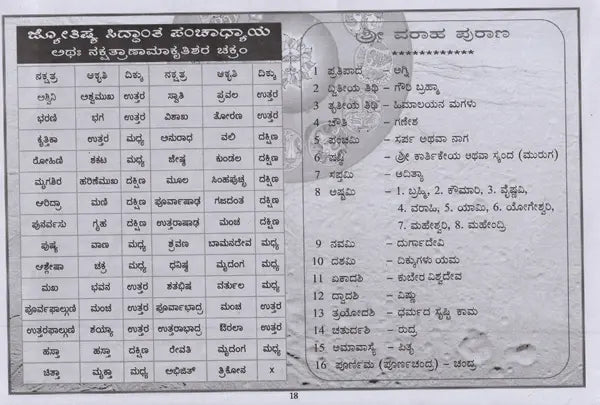 ಜ್ಯೋತಿಷ್ಯ ಸಿದ್ಧಾಂತ ಪಂಚಾಧ್ಯಾಯ
ಅಥಃ ನಕ್ಷತ್ರಾಣಾಮಾಕೃತಿಶರ ಚಕ್ರಂ
ನಕ್ಷತ್ರ ಆಕೃತಿ ದಿಕ್ಕು ನಕ್ಷತ್ರ ಆಕೃತಿ ದಿಕ್ಕು
ಅಶ್ವಿನಿ ಅಶ್ವಮುಖ ಉತ್ತರ ಸ್ವಾತಿ ಪ್ರವಲ ಉತ್ತರ
ಭರಣಿ ಭಗ ಉತ್ತರ ವಿಶಾಖ ತೋರಣ ಉತ್ತರ
ಕೃತಿಕಾ ಉತ್ತರ ಮಧ್ಯ ಅನುರಾಧ ವಲಿ ದಕ್ಷಿಣ
ರೋಹಿಣಿ ಶಕಟ ಮಧ್ಯ ಜೇಷ್ಠ ಕುಂಡಲ ದಕ್ಷಿಣ
ಮೃಗಶಿರ ಹರಿಣಮುಖ ದಕ್ಷಿಣ ಮೂಲ ಸಿಂಹಪುಚ್ಛ ದಕ್ಷಿಣ
ಆರಿದ್ರಾ ಮಣಿ ದಕ್ಷಿಣ ಪೂರ್ವಾಷಾಢ ಗಜದಂತ ದಕ್ಷಿಣ
ಪುನರ್ವಸು ಗೃಹ ದಕ್ಷಿಣ ಉತ್ತರಾಷಾಢ ಮಂಚ ದಕ್ಷಿಣ
ಪುಷ್ಯ ವಾಣ ಮಧ್ಯ ಶ್ರವಣ ಬಾಮನದೇವ ಮಧ್ಯ
ಆಶ್ಲೇಷಾ ಚಕ್ರ ಮಧ್ಯ ಧನಿಷ್ಠ ಮೃದಂಗ ಮಧ್ಯ
ಮಖ ಭವನ ಉತ್ತರ ಶತಭಿಷ ವರ್ತುಲ ಮಧ್ಯ
ಪೂರ್ವಫಾಲ್ಗುಣಿ ಮಂಚ ಉತ್ತರ ಪೂರ್ವಾಭಾದ್ರ ಮಂಚ ಉತ್ತರ
ಉತ್ತರಫಾಲ್ಗುಣಿ ಶಯ್ಯಾ ಉತ್ತರ ಉತ್ತರಾಭಾದ್ರ ಉತ್ತರ
ಹಸ್ತಾ ಹಸ್ತಾ ದಕ್ಷಿಣ ರೇವತಿ ಮೃದಂಗ ಮಧ್ಯ
ಚಿತ್ತಾ ಮುಕ್ತಾ ಮಧ್ಯ ಅಭಿಜಿತ್ ತ್ರಿಕೋನ x
ಶ್ರೀ ವರಾಹ ಪುರಾಣ
***********
1 ಪ್ರತಿಪಾದ – ಅಗ್ನಿ
2 ದ್ವಿತೀಯ ತಿಥಿ – ಗೌರಿ ಬ್ರಹ್ಮಾ
3 ತೃತೀಯ ತಿಥಿ – ಹಿಮಾಲಯನ ಮಗಳು
4 ಚೌತಿ – ಗಣೇಶ
5 ಪಂಚಮಿ – ಸರ್ಪ ಅಥವಾ ನಾಗ
6 ಷಷ್ಠಿ – ಶ್ರೀ ಕಾರ್ತಿಕೇಯ ಅಥವಾ ಸ್ಕಂದ (ಮುರುಗ)
7 ಸಪ್ತಮಿ – ಆದಿತ್ಯಾ
8 ಅಷ್ಟಮಿ – 1. ಬ್ರಹ್ಮಿ, 2. ಕೌಮಾರಿ, 3. ವೈಷ್ಣವಿ,
4. ವರಾಹಿ, 5. ಯಾಮಿ, 6. ಯೋಗೇಶ್ವರಿ,
7. ಮಹೇಶ್ವರಿ, 8. ಮಹೇಂದ್ರಿ
9 ನವಮಿ – ದುರ್ಗಾದೇವಿ
10 ದಶಮಿ – ದಿಕ್ಕುಗಳು ಯಮ
11 ಏಕಾದಶಿ – ಕುಬೇರ ವಿಶ್ವದೇವ
12 ದ್ವಾದಶಿ – ವಿಷ್ಣು
13 ತ್ರಯೋದಶಿ – ಧರ್ಮದ ಸೃಷ್ಟಿ ಕಾಮ
14 ಚತುರ್ದಶಿ – ರುದ್ರ
15 ಅಮಾವಾಸ್ಯೆ – ಪಿತೃ
16 ಪೂರ್ಣಿಮ (ಪೂರ್ಣಚಂದ್ರ) – ಚಂದ್ರ
18